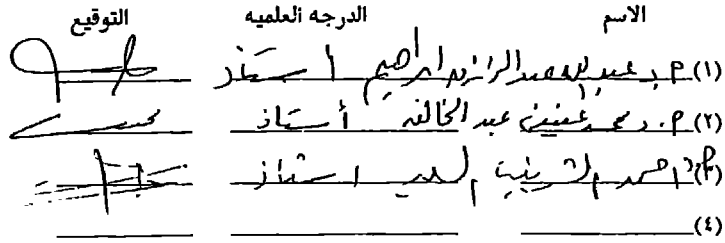 الاسم الدرجه العلميه التوقيع
(١) م.د عبد الله عبد الرازق ابراهيم أستاذ
(٢) م.د محمد عفيفي عبد الخالق أستاذ
(٣) احمد الشربيني السيد استاذ
(٤)